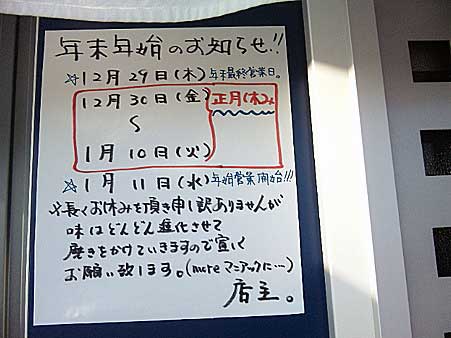 年末年始のお知らせ!!
☆12月29日(木)年末最終営業日。
12月30日(金)正月休み
〜
1月10日(火)
☆1月11日(水)年始営業開始!!!
少長くお休みを頂き申し訳ありませんが
味はどんどん進化させて
磨きをかけていきますので宜しく
お願い致します。(moreマニアックに…)
店主。